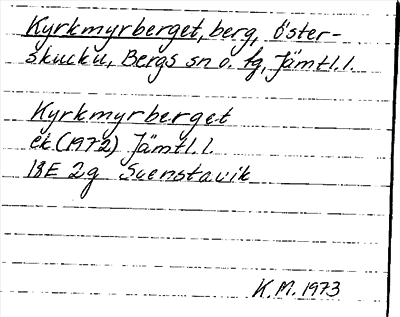 Kyrkmyrberget, berg, Öster-
skucku, Bergs sn o. tg, Jämtl. l.
Kyrkmyrberget
ek (1972) Jämtl. l.
18E 2g Svenstavik
K. M. 1973